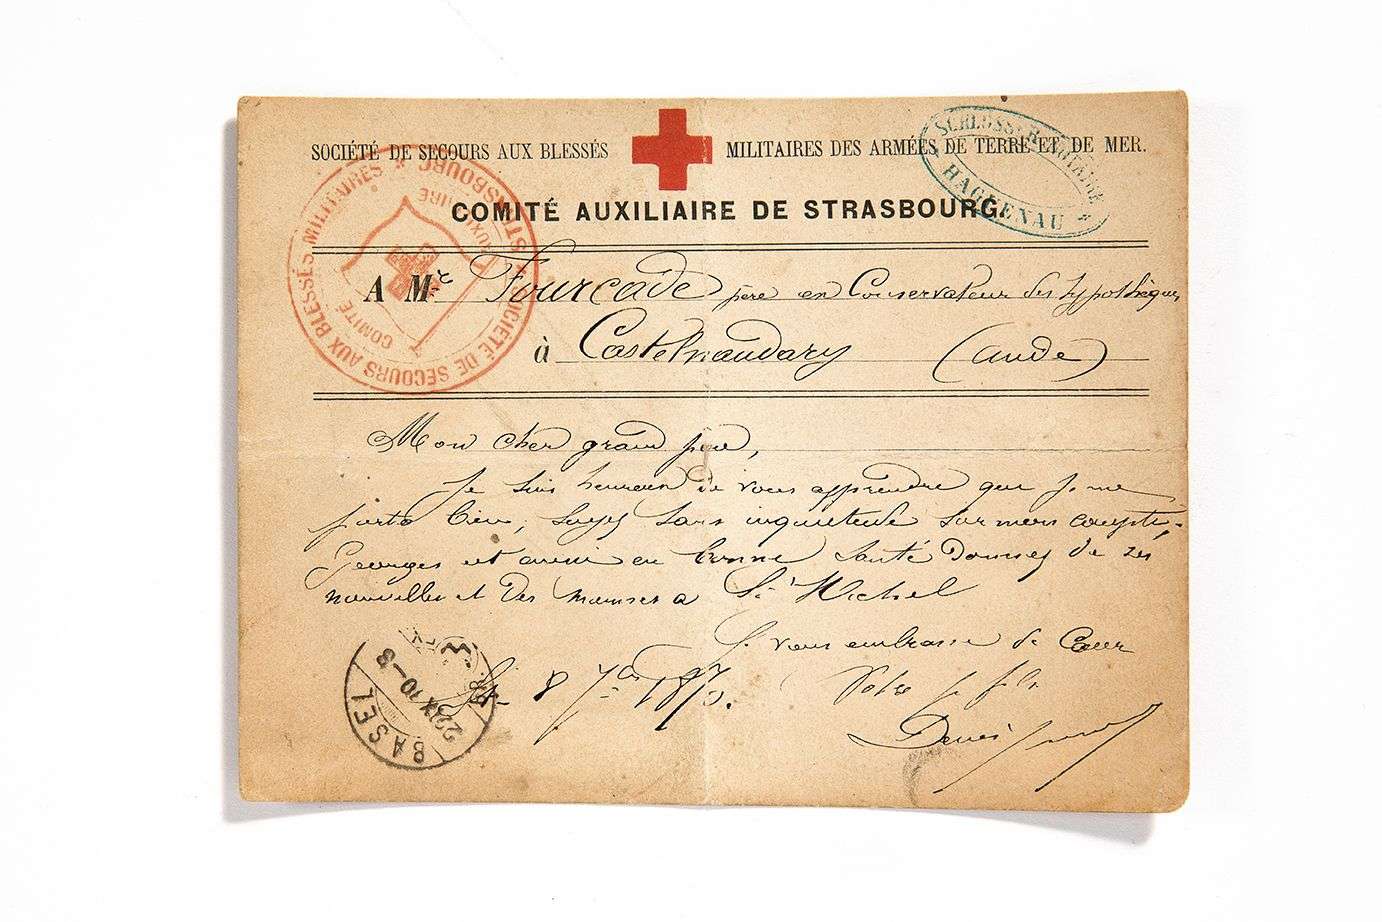 SOCIÉTÉ DE SECOURS AUX BLESSÉS MILITAIRES DES ARMÉES DE TERRE ET DE MER.
COMITÉ AUXILIAIRE DE STRASBOURG.
SOCIÉTÉ DE SECOURS AUX BLESSÉS MILITAIRES * STRASBOURG *
COMITÉ AUXILIAIRE
HAGUENAU
A Mr Fourcade père en Conservateur des hypothèques
à Castelnaudary (Aude)
Mon cher grand père,
Je suis heureux de vous apprendre que je me
porte bien, soyez sans inquietude sur mon compte,
Georges est aussi en bonne santé Donnez de ses
nouvelles et des miennes a St Michel
Je vous embrasse de Cœur
8 7bre 1870. Votre p. fils
Denis
BASEL
22 IX 70 - 8